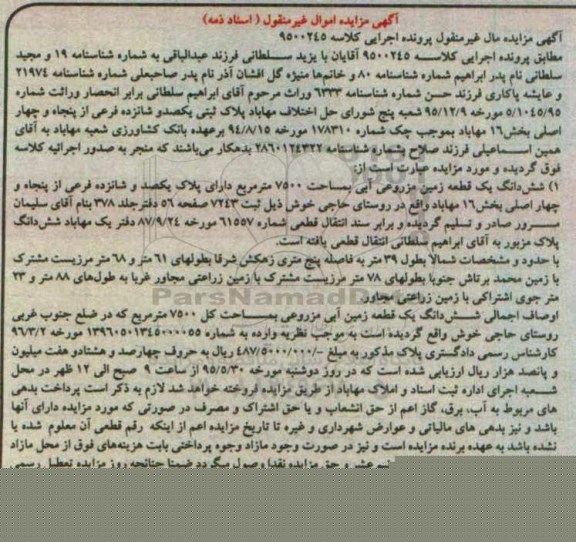 آگهی مزایده اموال غیرمنقول ( اسناد ذمه)
آگهی مزایده مال غیرمنقول پرونده اجرایی کلاسه ۹۵۰۰۲۴۵
مطابق پرونده اجرایی کلاسه ۹۵۰۰۲۴۵ آقایان با یزید سلطانی فرزند عبدالباقی به شماره شناسنامه ۱۹ و مجید
سلطانی نام پدر ابراهیم شماره شناسنامه ۸۰ و خانم‌ها منیژه گل افشان آذر نام پدر صاحبعلی شماره شناسنامه ۲۱۹۷۴
و عایشه پاکاری فرزند حسن شماره شناسنامه ۶۳۳۳ وراث مرحوم آقای ابراهیم سلطانی برابر انحصار وراثت شماره
۵/۱۰۴۵/۹۵ مورخه ۹۵/۱۲/۹ شعبه پنج شورای حل اختلاف مهاباد پلاک ثبتی یکصدو شانزده فرعی از پنجاه و چهار
اصلی بخش۱۶ مهاباد بموجب چک شماره ۱۷۸۳۱۰ مورخه ۹۴/۸/۱۵ برعهده بانک کشاورزی شعبه مهاباد به آقای
همین اسماعیلی فرزند صلاح بشماره شناسنامه ۲۸۶۰۱۲۴۳۲۲ بدهکار می‌باشند که منجر به صدور اجرائیه کلاسه
فوق گردیده و مورد مزایده عبارت است از:
۱) شش‌دانگ یک قطعه زمین مزروعی آبی بمساحت ۷۵۰۰ مترمربع دارای پلاک یکصد و شانزده فرعی از پنجاه و
چهار اصلی بخش۱۶ مهاباد واقع در روستای حاجی خوش ذیل ثبت ۷۲۴۳ صفحه ۵۶ دفترجلد ۳۷۸ بنام آقای سلیمان
سرور صادر و تسلیم گردیده و برابر سند انتقال قطعی شماره ۶۱۵۵۷ مورخه ۸۷/۹/۲۴ دفتر یک مهاباد شش‌دانگ
پلاک مزبور به آقای ابراهیم سلطانی انتقال قطعی یافته است.
با حدود و مشخصات شمالا بطول ۳۹ متر به فاصله پنج متری زهکش شرقا بطولهای ۶۱ متر و ۶۸ متر مرزیست مشترک
با زمین محمد برتاش جنوبا بطولهای ۷۸ متر مرزیست مشترک با زمین زراعتی مجاور غربا به طول‌های ۸۸ متر و ۲۳
متر جوی اشتراکی با زمین زراعتی مجاور
اوصاف اجمالی شش‌دانگ یک قطعه زمین آبی مزروعی بمساحت کل ۷۵۰۰ مترمربع که در ضلع جنوب غربی
روستای حاجی خوش واقع گردیده است به موجب نظریه وارده به شماره ۱۳۹۶۰۵۰۱۳۴۵۰۰۰۰۵۵ مورخه ۹۶/۳/۲
کارشناس رسمی دادگستری پلاک مذکور به مبلغ -/۴۸۷/۵۰۰۰/۰۰۰ ریال به حروف چهارصد و هشتادو هفت میلیون
و پانصد هزار ریال ارزیابی شده است که در روز دوشنبه مورخه ۹۵/۵/۳۰ از ساعت ۹ صبح الی ۱۲ ظهر در محل
شعبه اجرای اداره ثبت اسناد و املاک مهاباد از طریق مزایده فروخته خواهد شد لازم به ذکر است پرداخت بدهی
های مربوط به آب، برق، گاز اعم از حق انشعاب و یا حق اشتراک و مصرف در صورتی که مورد مزایده دارای آنها
باشد و نیز بدهی های مالیاتی و عوارض شهرداری و غیره تا تاریخ مزایده اعم از اینکه رقم قطعی آن معلوم شده یا
نشده باشد به عهده برنده مزایده است و نیز در صورت وجود مازاد وجوه پرداختی بابت هزینه‌های فوق از محل مازاد
نیم عشر و حق مزایده نقدا وصول میگردد ضمنا چنانچه روز مزایده تعطیل رسمی
ParsNamadData